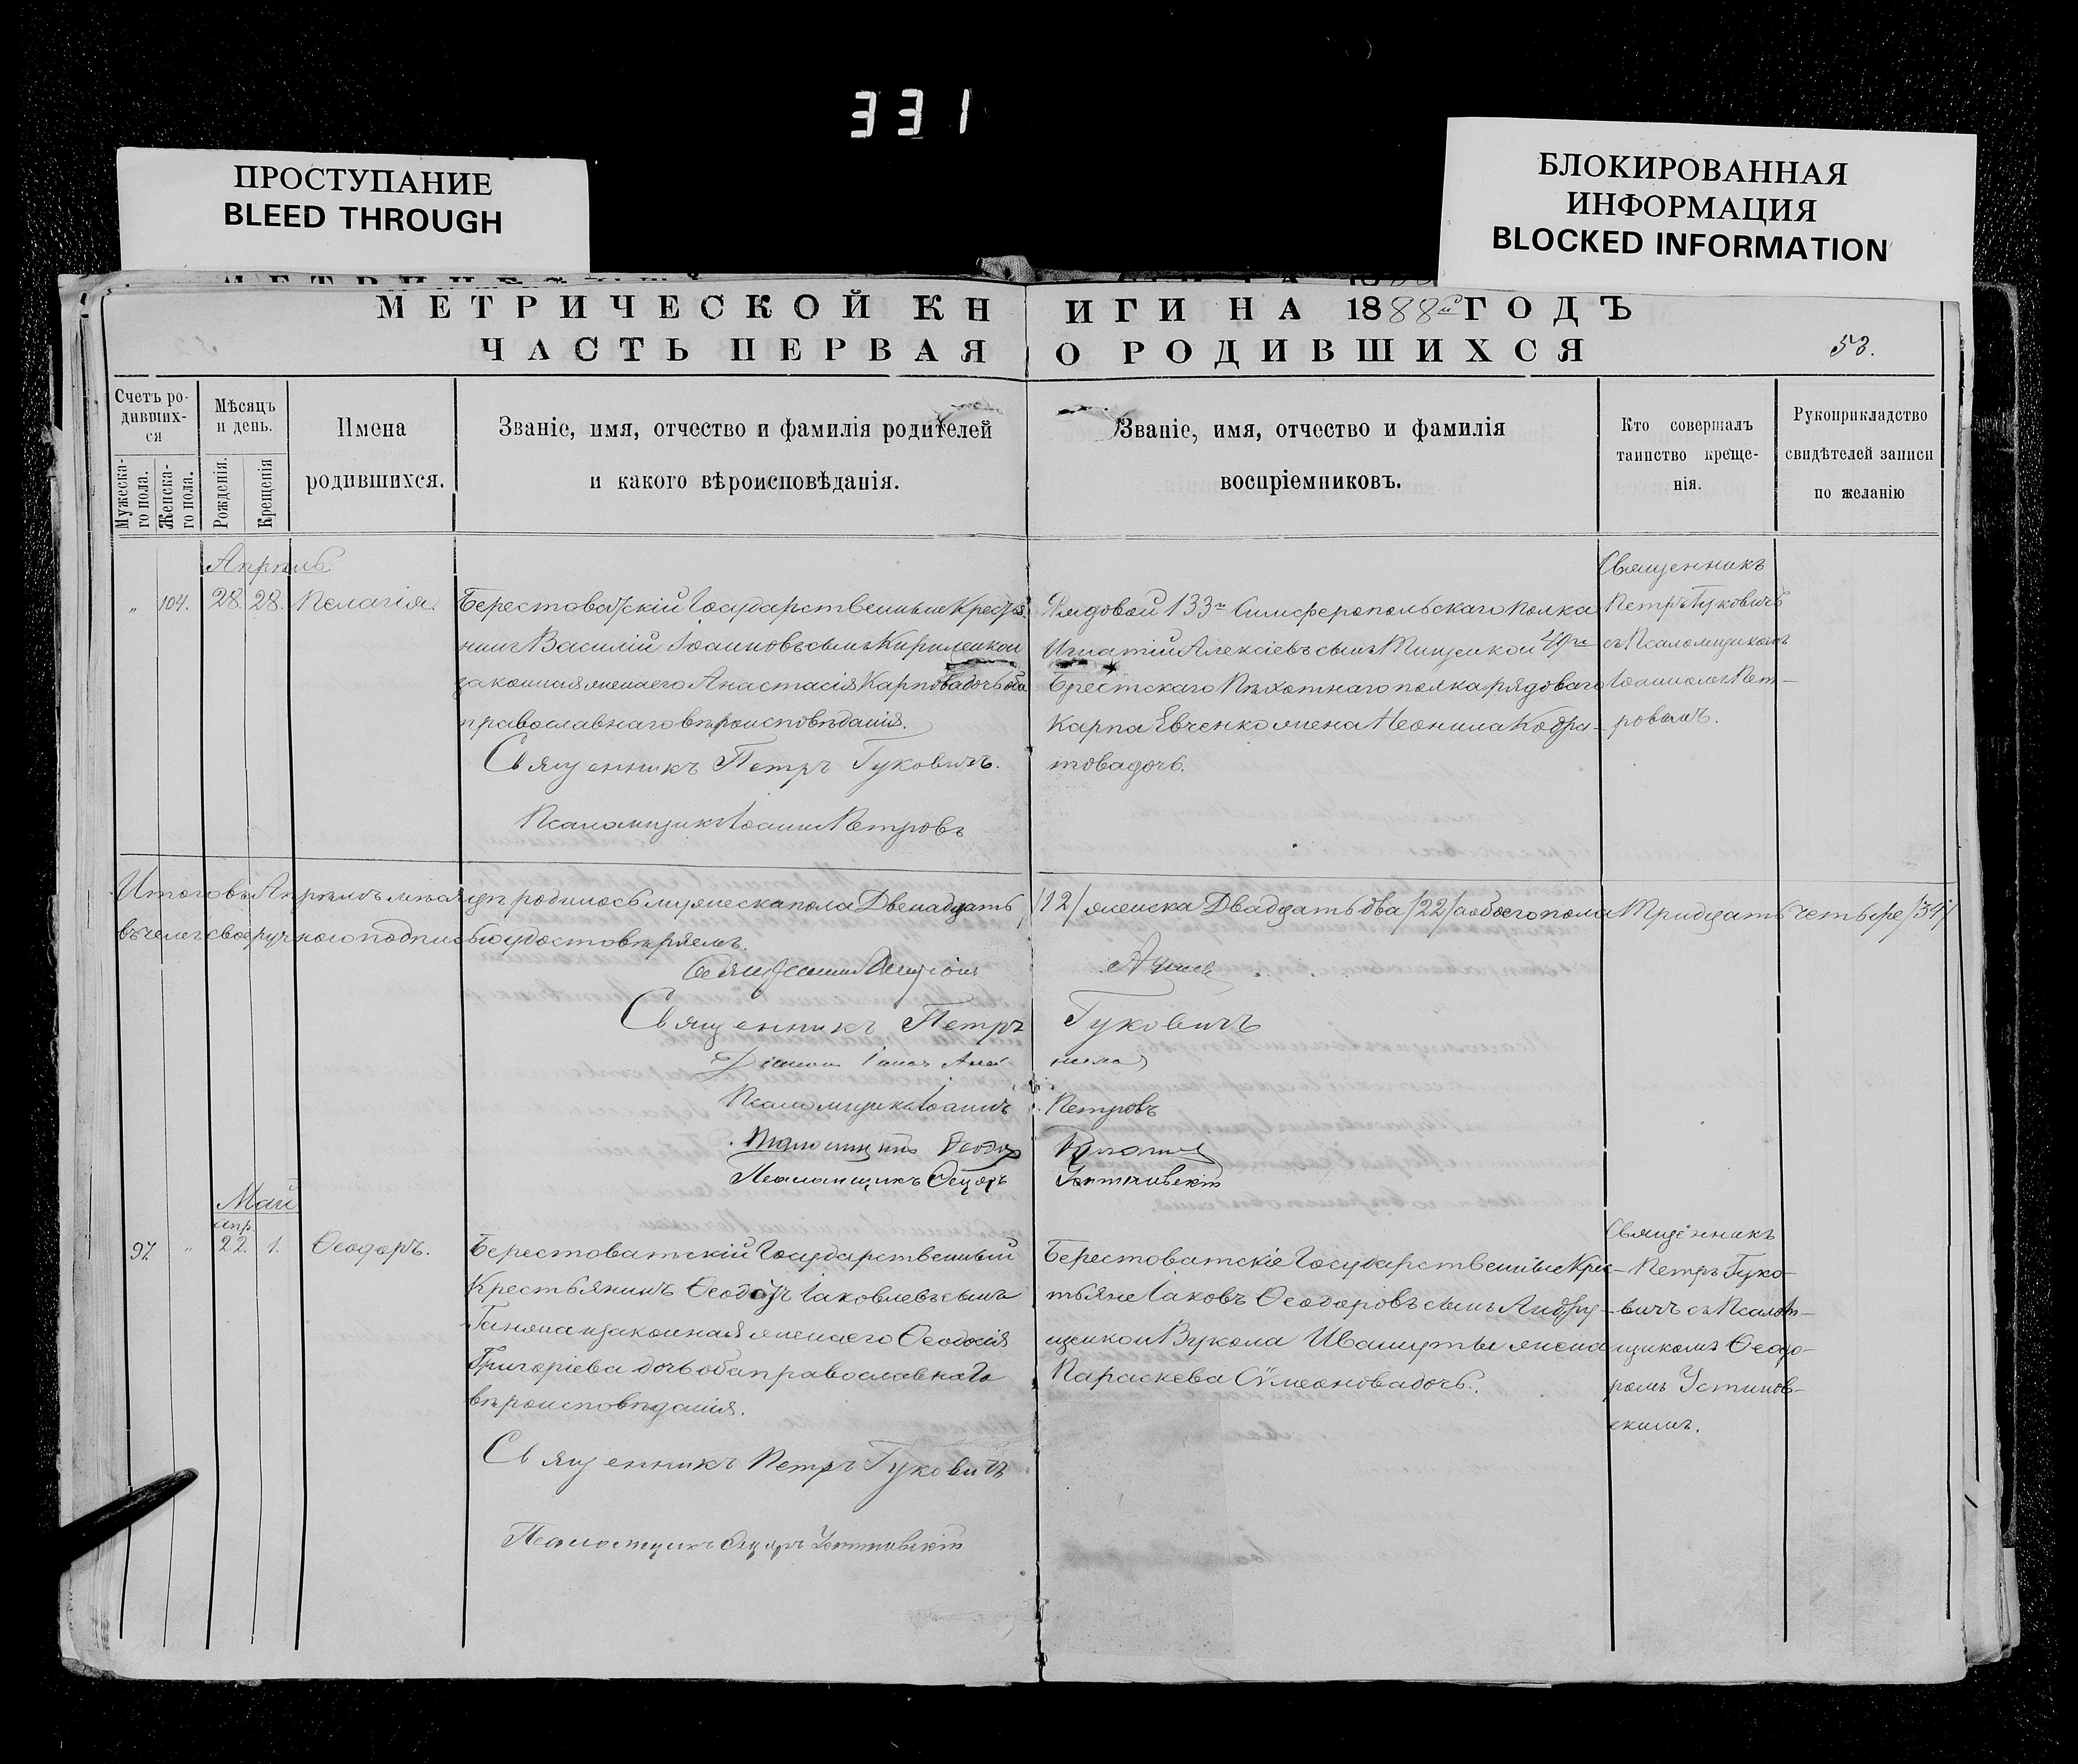 331
ПРОСТУПАНИЕ
BLEED THROUGH
БЛОКИРОВАННАЯ
ИНФОРМАЦИЯ
BLOCKED INFORMATION
МЕТРИЧЕСКОЙ КНИГИ НА 1888й ГОДЪ
ЧАСТЬ ПЕРВАЯ О РОДИВШИХСЯ
53.
Счетъ ро-
дивших-
ся
Мужеска-
го пола.
Женска-
го пола.
Мѣсяцъ
и день.
Рожденія.
Крещенія
Имена
родившихся.
Званіе, имя, отчество и фамилія родителей
и какого вѣроисповѣданія.
Званіе, имя, отчество и фамилія
воспріемниковъ.
Кто совершалъ
таинство креще-
нія.
Рукоприкладство
свидѣтелей записи
по желанію
Апрѣль
„ 104. 28. 28. Пелагія.
Берестоватскій Государственный Крестья-
нинъ Василій Іоанновъ сынъ
законная жена его Анастасія Карпова дочь оба
православнаго вѣроисповѣданія.
Священникъ Петръ Гуковичъ.
Псаломщикъ Іоаннъ Петровъ
Рядовой 133го Симферопольскаго полка
Игнатій Алексѣевъ сынъ Тищенко и 49го
Брестскаго Пѣхотнаго полка рядоваго
Карпа Евченко жена Неонила Кодра-
това дочь.
Священникъ
Петръ Гуковичъ
съ Псаломщикомъ
Іоанномъ Пет-
ровымъ.
Итого въ Апрѣлѣ мѣсяцѣ родилось мужеска пола Двенадцать /12/ женска Двадцать два /22/ а обоего пола Тридцать четыре /34/
въ чемъ своеручною подписью удостовѣряемъ.
Священникъ
Священникъ Петръ Гуковичъ
Псаломщикъ Іоаннъ Петровъ
Псаломщикъ Ѳеодоръ
Псаломщикъ Ѳеодоръ Устиновскій
Май
97. „ апр. 22. 1. Ѳеодоръ.
Берестоватскій Государственный
Крестьянинъ Ѳеодоръ Іаковлевъ сынъ
и законная жена его Ѳеодосія
Григоріева дочь оба православнаго
вѣроисповѣданія.
Священникъ Петръ Гуковичъ
Псаломщикъ Ѳеодоръ Устиновскій
Берестоватскіе Государственные Крес-
тьяне Іаковъ Ѳеодоровъ сынъ Андру-
щенко и Вукола Ивашуты жена
Параскева Сѵмеонова дочь.
Священникъ
Петръ Гуко-
вичъ съ Псалом-
щикомъ Ѳеодо-
ромъ Устинов-
скимъ.